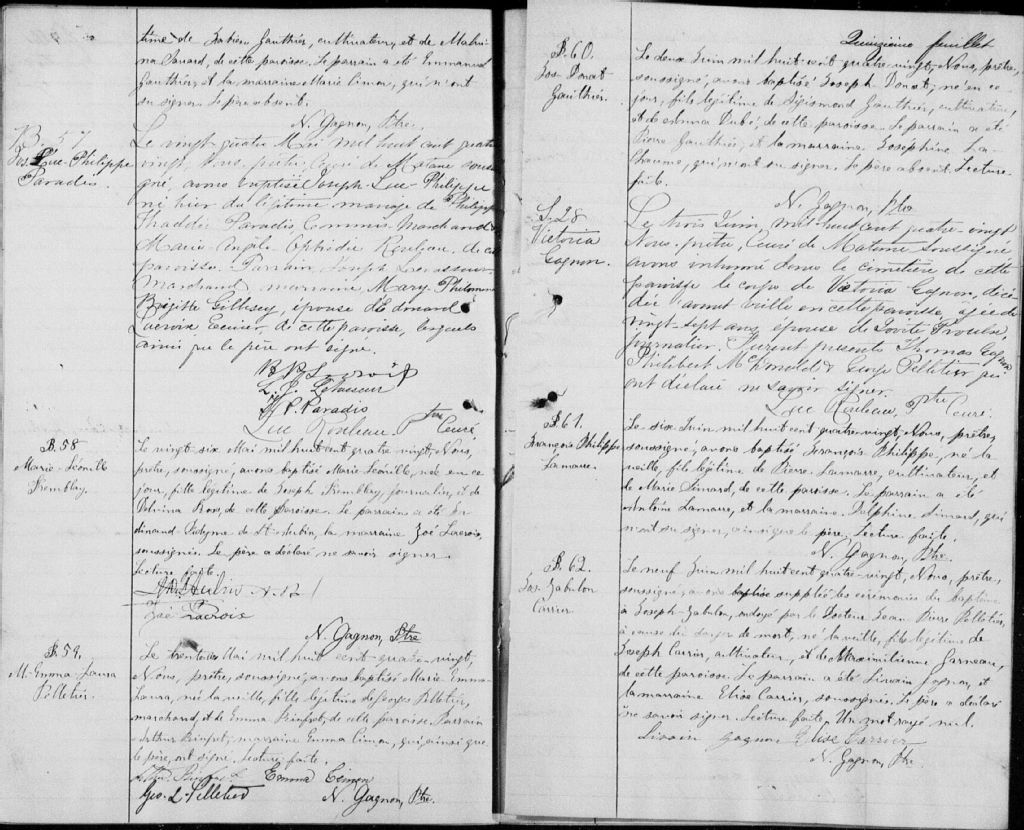 time de Fabien Gauthier, cultivateur, et de Malvi-
na Savard, de cette paroisse. Le parrain a été Emmanuel
Gauthier, et la marraine Marie Simon, qui n'ont
su signer. Le père absent.
N. Gagnon, Ptre.
B. 57
Jos. Luc-Philippe
Paradis.
Le vingt quatre Mai mil huit cent quatre
vingt, Nous, prêtre Curé de Matane sous-
gné, avons baptisé Joseph-Luc-Philippe
né hier du légitime mariage de Philippe
Thaddé Paradis Commis Marchand &
Marie Ophédie Rouleau de cette
paroisse. Parrain, Joseph Levasseur
marchand, marraine Mary Philomène
Brigitte, épouse d'Edouard
Lacroix, de cette paroisse, lesquels
ainsi que le père ont signé.
B B Lacroix
L. J. Levasseur
P. Paradis
Luc Rouleau Ptre Curé
B. 58
Marie-Léonille
Tremblay.
Le vingt six Mai mil huit cent quatre vingt, Nous,
prêtre, soussigné, avons baptisé Marie Léonille, née en ce
jour, fille légitime de Joseph Tremblay, journalier, et de
Ross, de cette paroisse. Le parrain a été Fer-
dinand de St, la marraine Zoé Lacroix,
soussignés. Le père a déclaré ne savoir signer.
Lecture faite.
Zoé Lacroix
N. Gagnon, Ptre
B. 59.
M. Emma-Laura
Pelletier.
Le trente Mai mil huit cent quatre-vingt,
Nous, prêtre, soussigné, avons baptisé Marie Emma-
Laura, née la veille, fille légitime de Georges Pelletier,
marchand, et de Emma Rinfret, de cette paroisse. Parrain
Arthur Rinfret, marraine Emma Simon, qui, ainsi que
le père, ont signé. Lecture faite.
Emma Simon
Geo. L. Pelletier N. Gagnon, Ptre.
Quinzième feuillet
B. 60.
Jos. Donat
Gauthier.
Le deux Juin mil huit cent quatre vingt, Nous, prêtre,
soussigné, avons baptisé Joseph-Donat, né en ce
jour, fils légitime de Sigismond Gauthier, cultivateur,
et de Emma Dubé, de cette paroisse. Le parrain a été
Pierre Gauthier, et la marraine Josephine La-
chaume, qui n'ont su signer. Le père absent. Lecture
faite.
N. Gagnon, Ptre
S. 28
Victoria
Gagnon.
Le trois Juin mil huit cent quatre-vingt
Nous prêtre, Curé de Matane soussigné
avons inhumé dans le cimetière de cette
paroisse le corps de Victoria Gagnon, décé-
dée avant veille en cette paroisse, agée de
vingt-sept ans, épouse de Proulx,
journalier. Furent présents Thomas Gagnon
Philibert & George Pelletier qui
ont déclaré ne savoir signer.
Luc Rouleau, Ptre Curé.
B. 61.
François Philippe
Lamarre.
Le six Juin mil huit cent quatre-vingt, Nous, prêtre,
soussigné, avons baptisé François Philippe, né la
veille, fils légitime de Pierre Lamarre, cultivateur, et
de Marie Simard, de cette paroisse. Le parrain a été
Antoine Lamarre, et la marraine Delphine Simard, qui
n'ont su signer, ainsi que le père, Lecture faite.
N. Gagnon, Ptre.
B. 62.
Jos. Zabulon
Carrier.
Le neuf Juin mil huit cent quatre-vingt, Nous, prêtre,
soussigné, avons baptisé suppléé les cérémonies du baptême
à Joseph-Zabulon, ondoyé par le Docteur Jean Pierre Pelletier,
à cause du danger de mort, né la veille, fils légitime de
Joseph Carrier, cultivateur, et de Maximilienne Garneau,
de cette paroisse. Le parrain a été Sivain Gagnon, et
la marraine Elise Carrier, soussignés. Le père a déclaré
ne savoir signer. Lecture faite. Un mot rayé nul.
Sivain Gagnon Elise Carrier
N. Gagnon, Ptre.